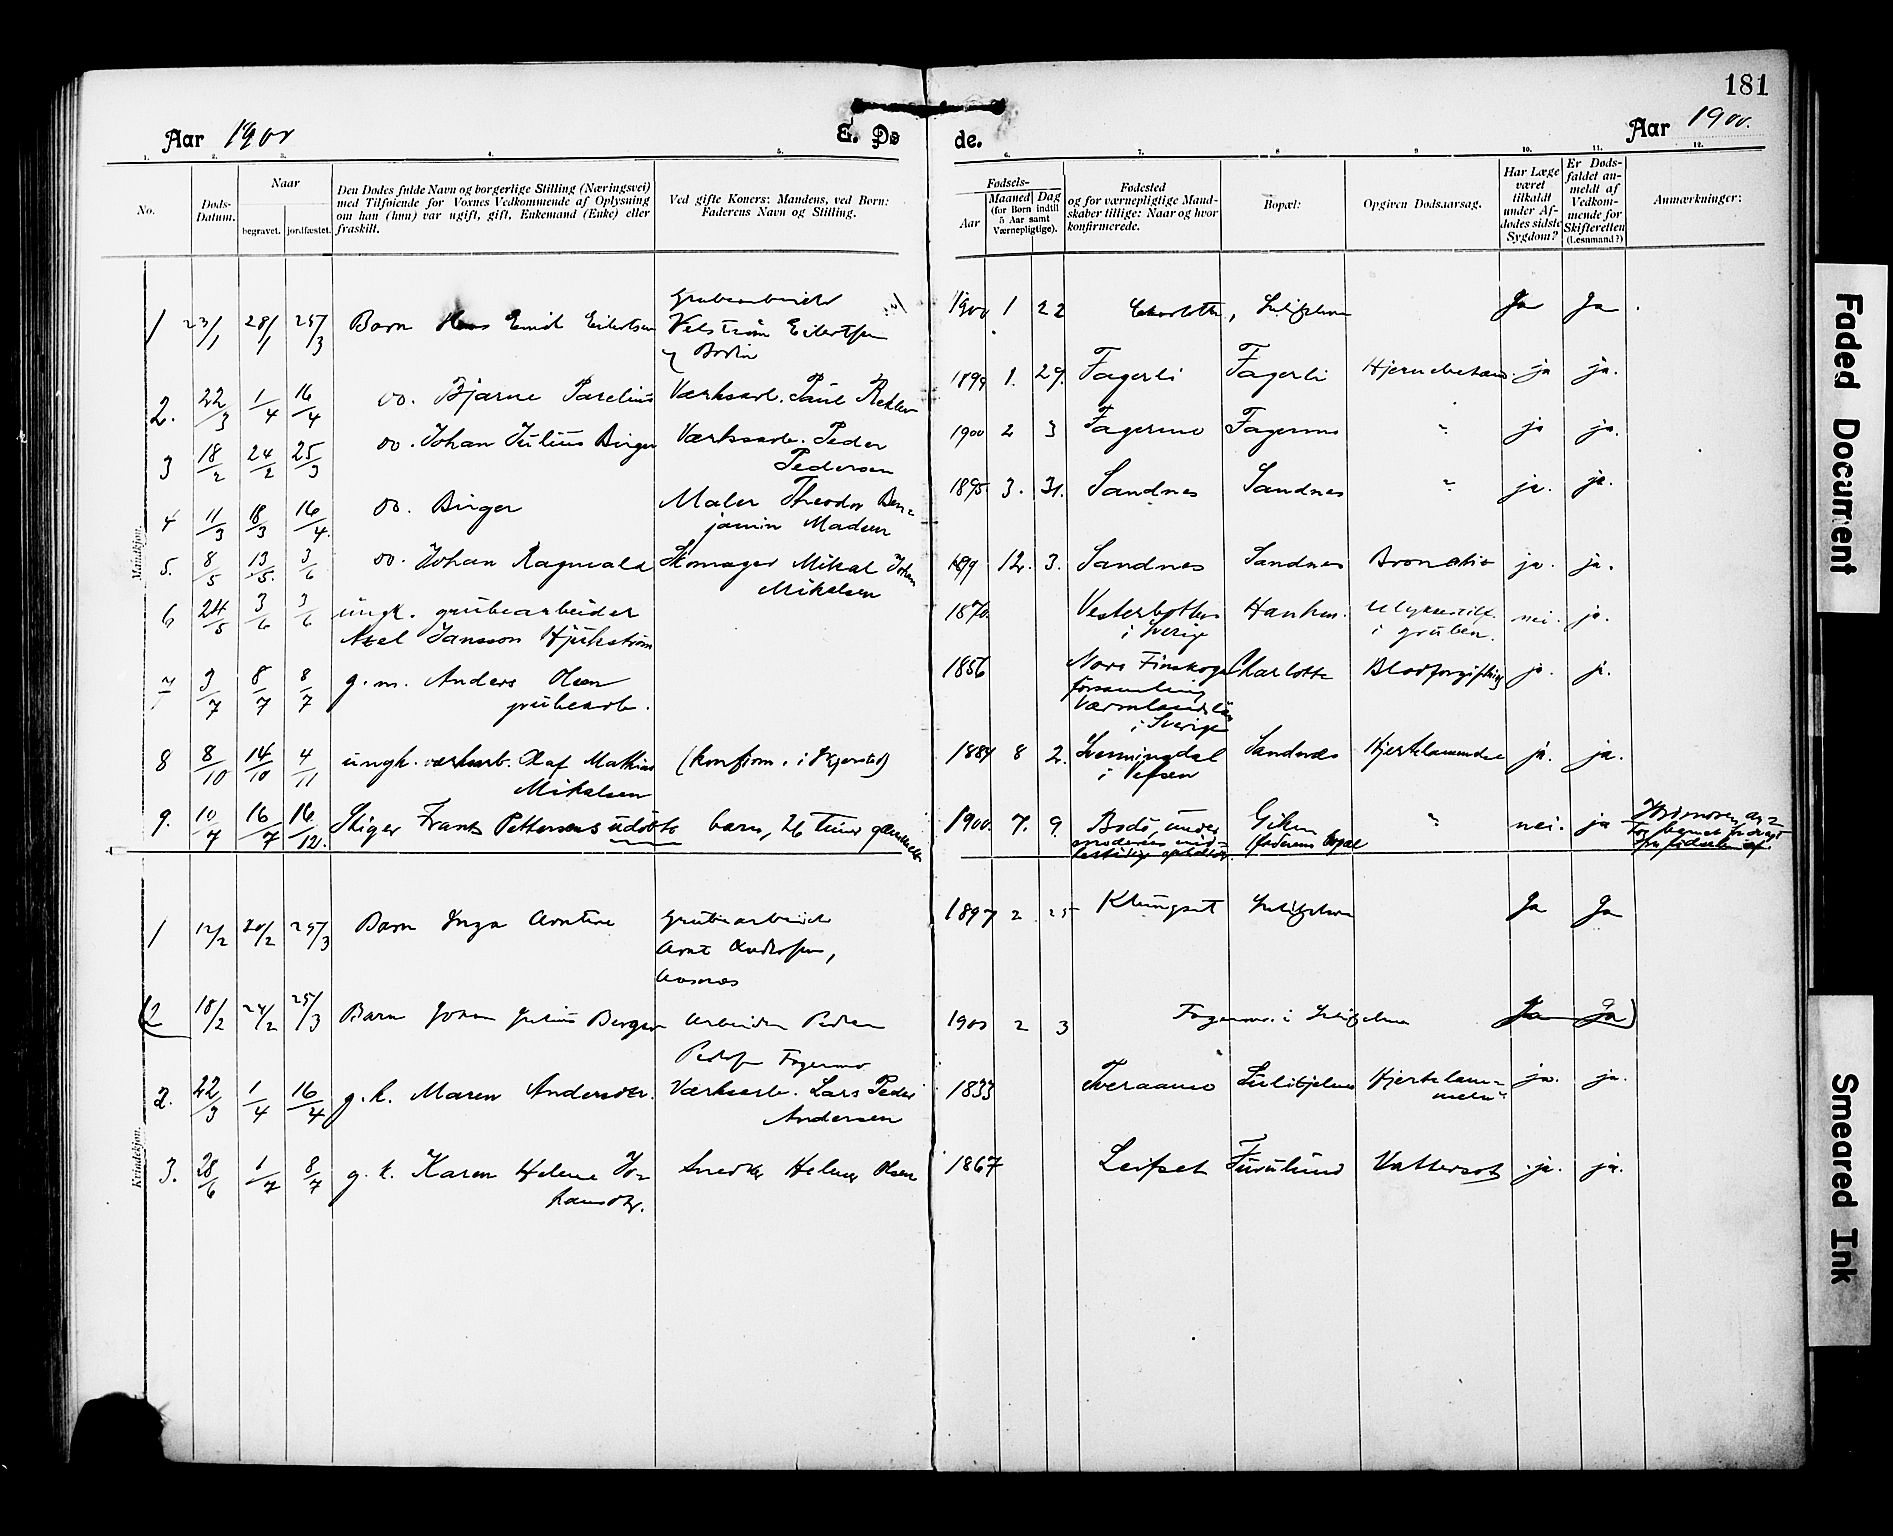 181
Aar 1900
E. Dø
de.
Aar 1900.
1. 2. 3. 4. 5. 6. 7. 8. 9. 10. 11. 12.
No.
Døds-
Datum.
Naar
begravet. jordfæstet.
Den Dødes fulde Navn og borgerlige Stilling (Næringsvei)
med Tilføiende for Voxnes Vedkommende af Oplysning
om han (hun) var ugift, gift, Enkemand (Enke) eller
fraskilt.
Ved gifte Koners: Mandens, ved Børn:
Faderens Navn og Stilling.
Fødsels-
Aar
Maaned Dag
(for Børn indtil
5 Aar samt
Værnepligtige).
Fødested
og for værnepligtige Mand-
skaber tillige: Naar og hvor
konfirmerede.
Bopæl:
Opgiven Dødsaarsag.
Har Læge
været
tilkaldt
under Af-
dødes sidste
Sygdom?
Er Døds-
faldet an-
meldt af
Vedkom-
mende for
Skifteretten
(Lensmand?)
Anmærkninger:
Mandkjøn.
1 23/1 28/1 25/3 Barn Emil Eilertsen
Grubearbeider
Eilertsen
1900 1 22 Charlotte, Sulitjelma Ja Ja
2. 22/3 1/4 16/4 do. Bjarne Parelius Værksarb. Paul
1899 1. 29. Fagerli Fagerli ja ja.
3 18/2 24/2 25/3 do. Johan Julius Birger Værksarb. Peder
Pedersen
1900 2 3 Fagermo Fagermo " ja ja.
4 11/3 18/3 16/4. do. Birger Maler Theodor Ben=
jamin Madsen
1895 3. 31. Sandnes Sandnes " ja. ja.
5. 8/5 13/5. 3/6 do. Johan Ragnvald Skomager Mikal Johan
Mikalsen
1899 12. 3. Sandnes Sandnes ja. ja.
6 24/5 3/6 3/6 ungk. grubearbeider
Axel Jansson
1870. Vesterbotten
i Sverige
i gruben. nei. ja.
7 3/7 8/7 8/7 g.m. Anders Olsen
grubearb.
1856 Finskoga
församling
Värmlands län
i Sverige
Charlotte Blodforgiftning ja. ja.
8 8/10 14/10 4/11 ungk. Olaf Mathias
Mikalsen
1884 8 2.
i Vefsen
Sandnes Hjertelammelse ja. ja.
9. 10/7 16/7 16/12. Stiger Frantz Pettersens udøbte barn, 26 timer gammelt
1900. 7. 9. Bodø, under
moderens mid=
lertidige ophold der.
(faderens bopæl " nei. ja
Kvindekjøn.
1 12/2 20/2 25/3 Barn Inga Arntine Grubearbeider
Arnt
1897 2 25 Klungset Sulitjelma Ja Ja
(2 18/2 24/2 25/3 Barn Johan Julius Berger Arbeider Peder
Fagermo
1900 2 3 Fagermo i Sulitjelma Ja Ja)
2. 22/3 1/4 16/4 g.k. Maren Andersdtr. Værksarb. Lars Peder
Andersen
1833 Tveraamo Sulitjelma Hjertelam=
melse ja. ja.
3. 28/6 1/7 8/7 g.k. Karen Helene Jo=
hansdtr.
Snedker Helmer Olsen
1867 Leifset Furulund Vattersot ja. ja.
Faded Document
Smeared Ink